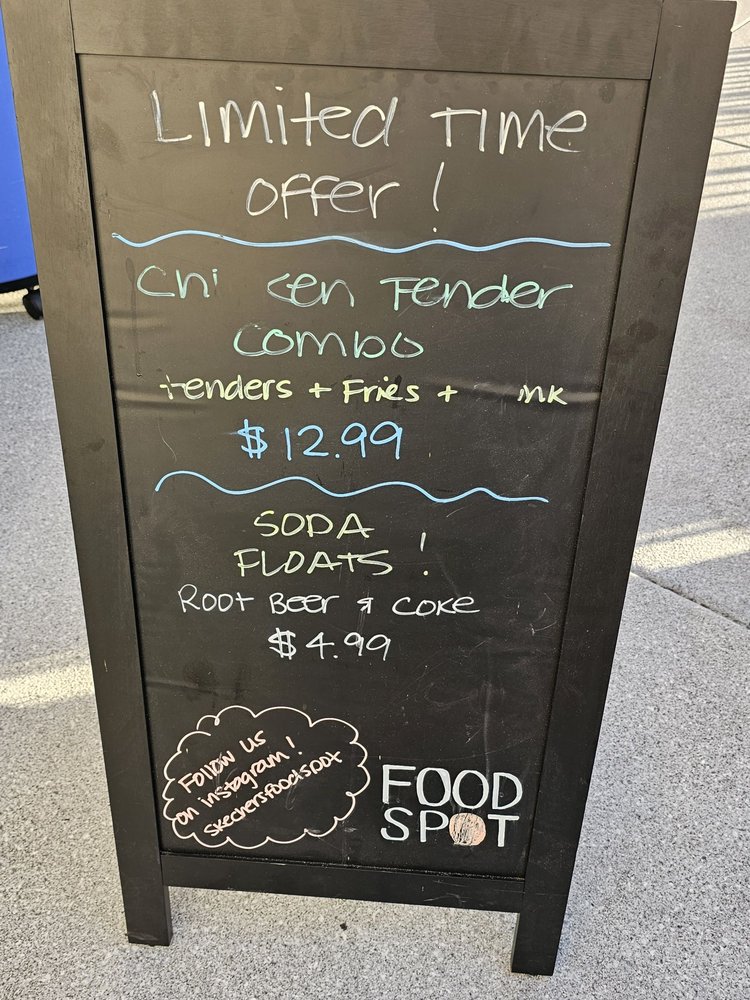 Limited Time
Offer!
Chi cken Tender
Combo
tenders + Fries + ink
$12.99
SODA
FLOATS!
Root Beer & Coke
$4.99
Follow us
on instagram!
skechersfoodspot
FOOD
SPOT